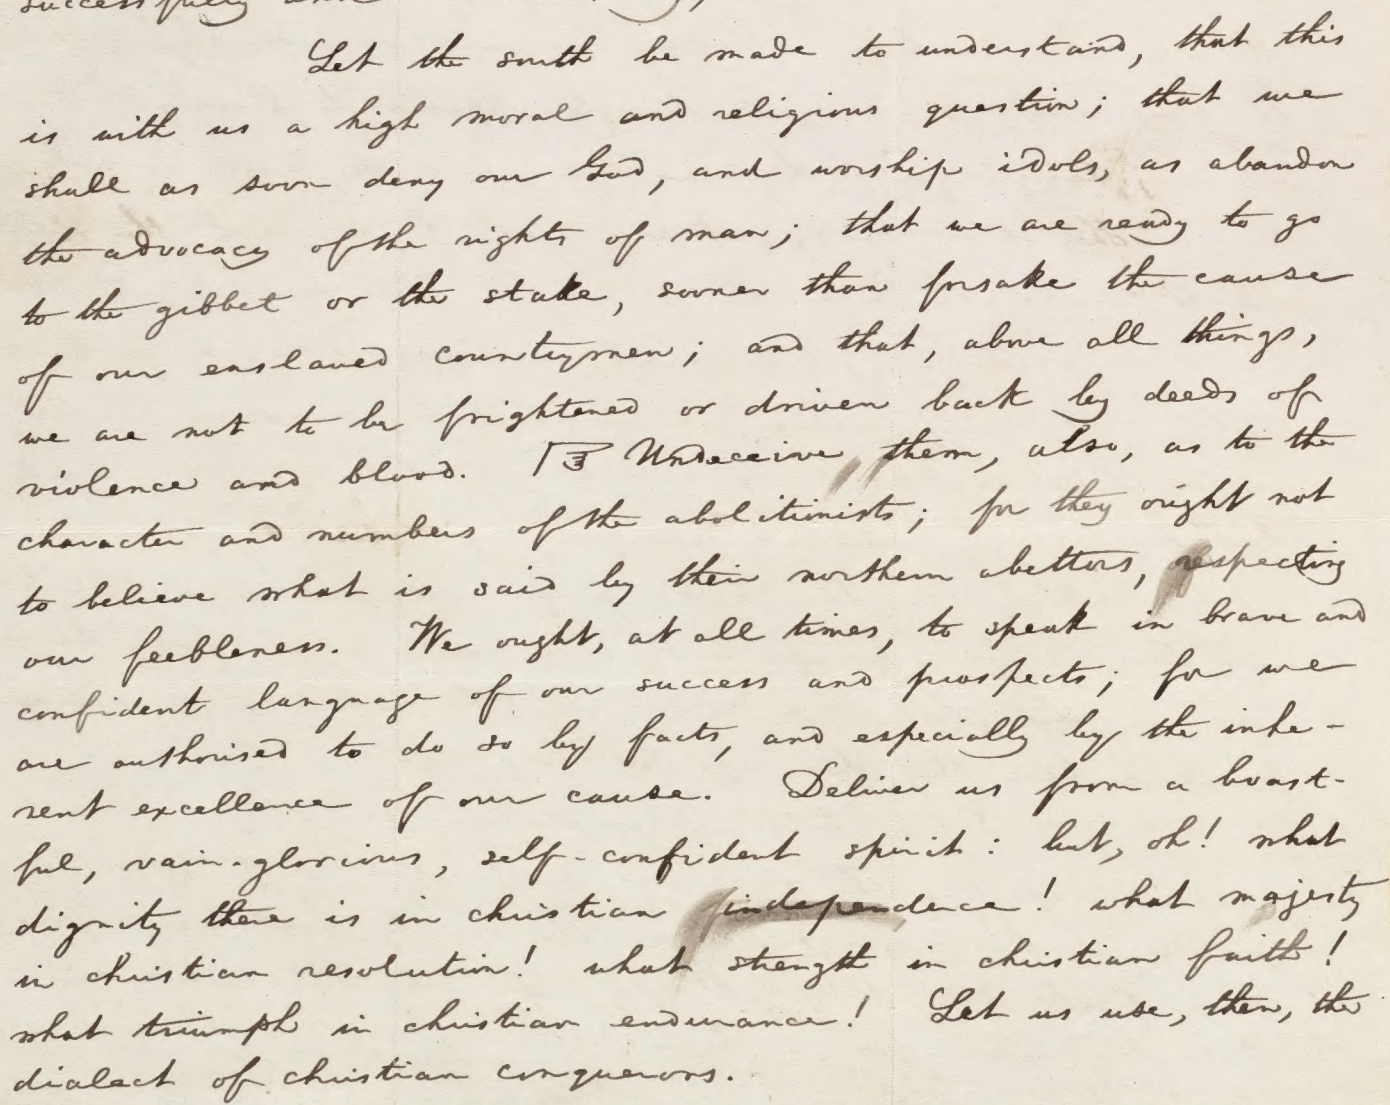 successfully
Let the south be made to understand, that this
is with us a high moral and religious question; that we
shall as soon deny our God, and worship idols, as abandon
the advocacy of the rights of man; that we are ready to go
to the gibbet or the stake, sooner than forsake the cause
of our enslaved countrymen; and that, above all things,
we are not to be frightened or driven back by deeds of
violence and blood. ☞ Undeceive them, also, as to the
character and numbers of the abolitionists; for they ought not
to believe what is said by their northern abettors, respecting
our feebleness. We ought, at all times, to speak in brave and
confident language of our success and prospects; for we
are authorised to do so by facts, and especially by the inhe-
rent excellence of our cause. Deliver us from a boast-
ful, vain-glorious, self-confident spirit: but, oh! what
dignity there is in christian independence! what majesty
in christian resolution! what strength in christian faith!
what triumph in christian endurance! Let us use, then, the
dialect of christian conquerors.